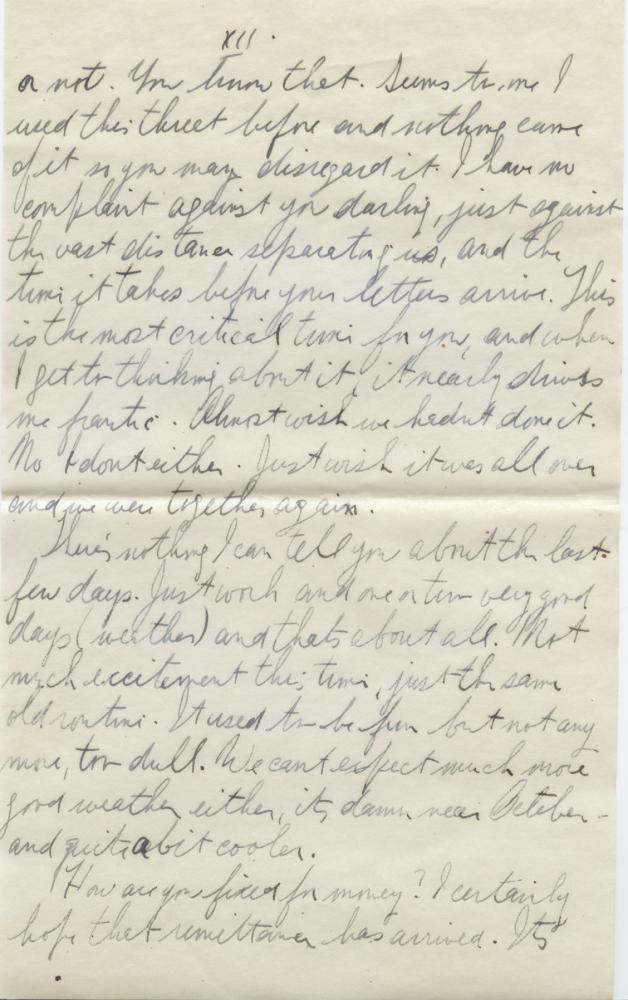 XII.
or not. You know that. Seems to me I
used this threet before and nothing came
of it so you may disregard it. I have no
complaint against you darling, just against
the vast distance separating us, and the
time it takes before your letters arrive. This
is the most critical time for you, and when
I get to thinking about it, it nearly drives
me frantic. Almost wish we hadn't done it.
No I dont either. Just wish it was all over
and we were together again.
There's nothing I can tell you about the last
few days. Just work and one or two very good
days (weather) and thats about all. Not
much excitement this time, just the same
old routine. It used to be fun but not any
more, too dull. We cant expect much more
good weather either, its damn near October -
and quite a bit cooler.
How are you fixed for money? I certainly
hope that remittance has arrived. Its